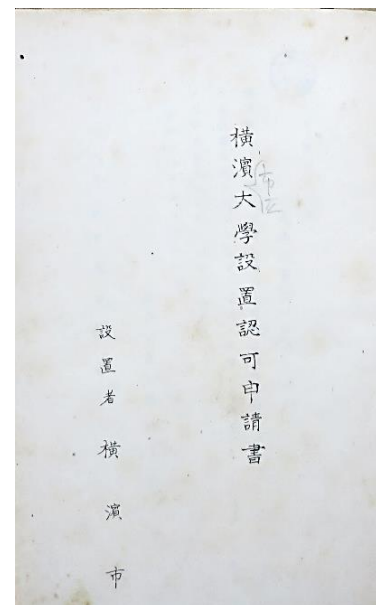 橫濱大學設置認可申請書
市立
設置者 橫濱市